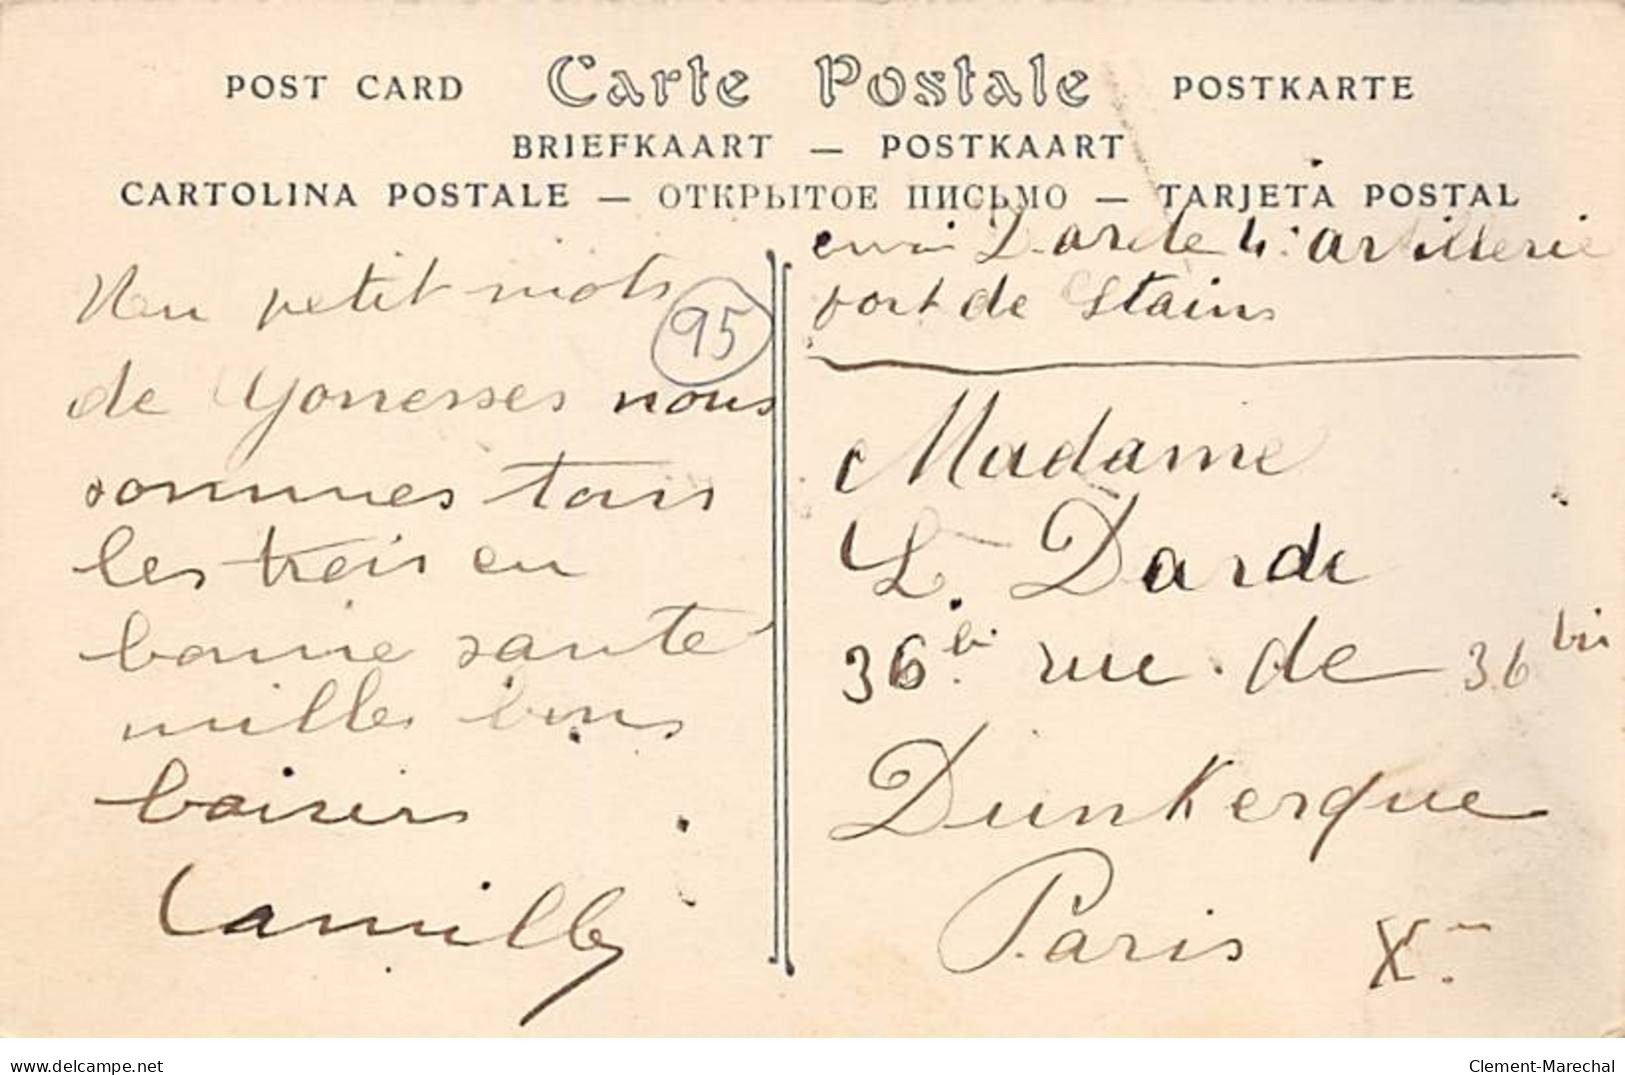 POST CARD Carte Postale POSTKARTE
BRIEFKAART — POSTKAART
CARTOLINA POSTALE — ОТКРЫТОЕ ПИСЬМО — TARJETA POSTAL
petit mots
95
de Gonesses nous
sommes tous
les trois en
bonne santé
milles bons
baisers
Camille
envoi Darde 4e artillerie
fort de Stains
Madame
L. Darde
36 bi rue de 36 bis
Dunkerque
Paris X
Clement-Marechal